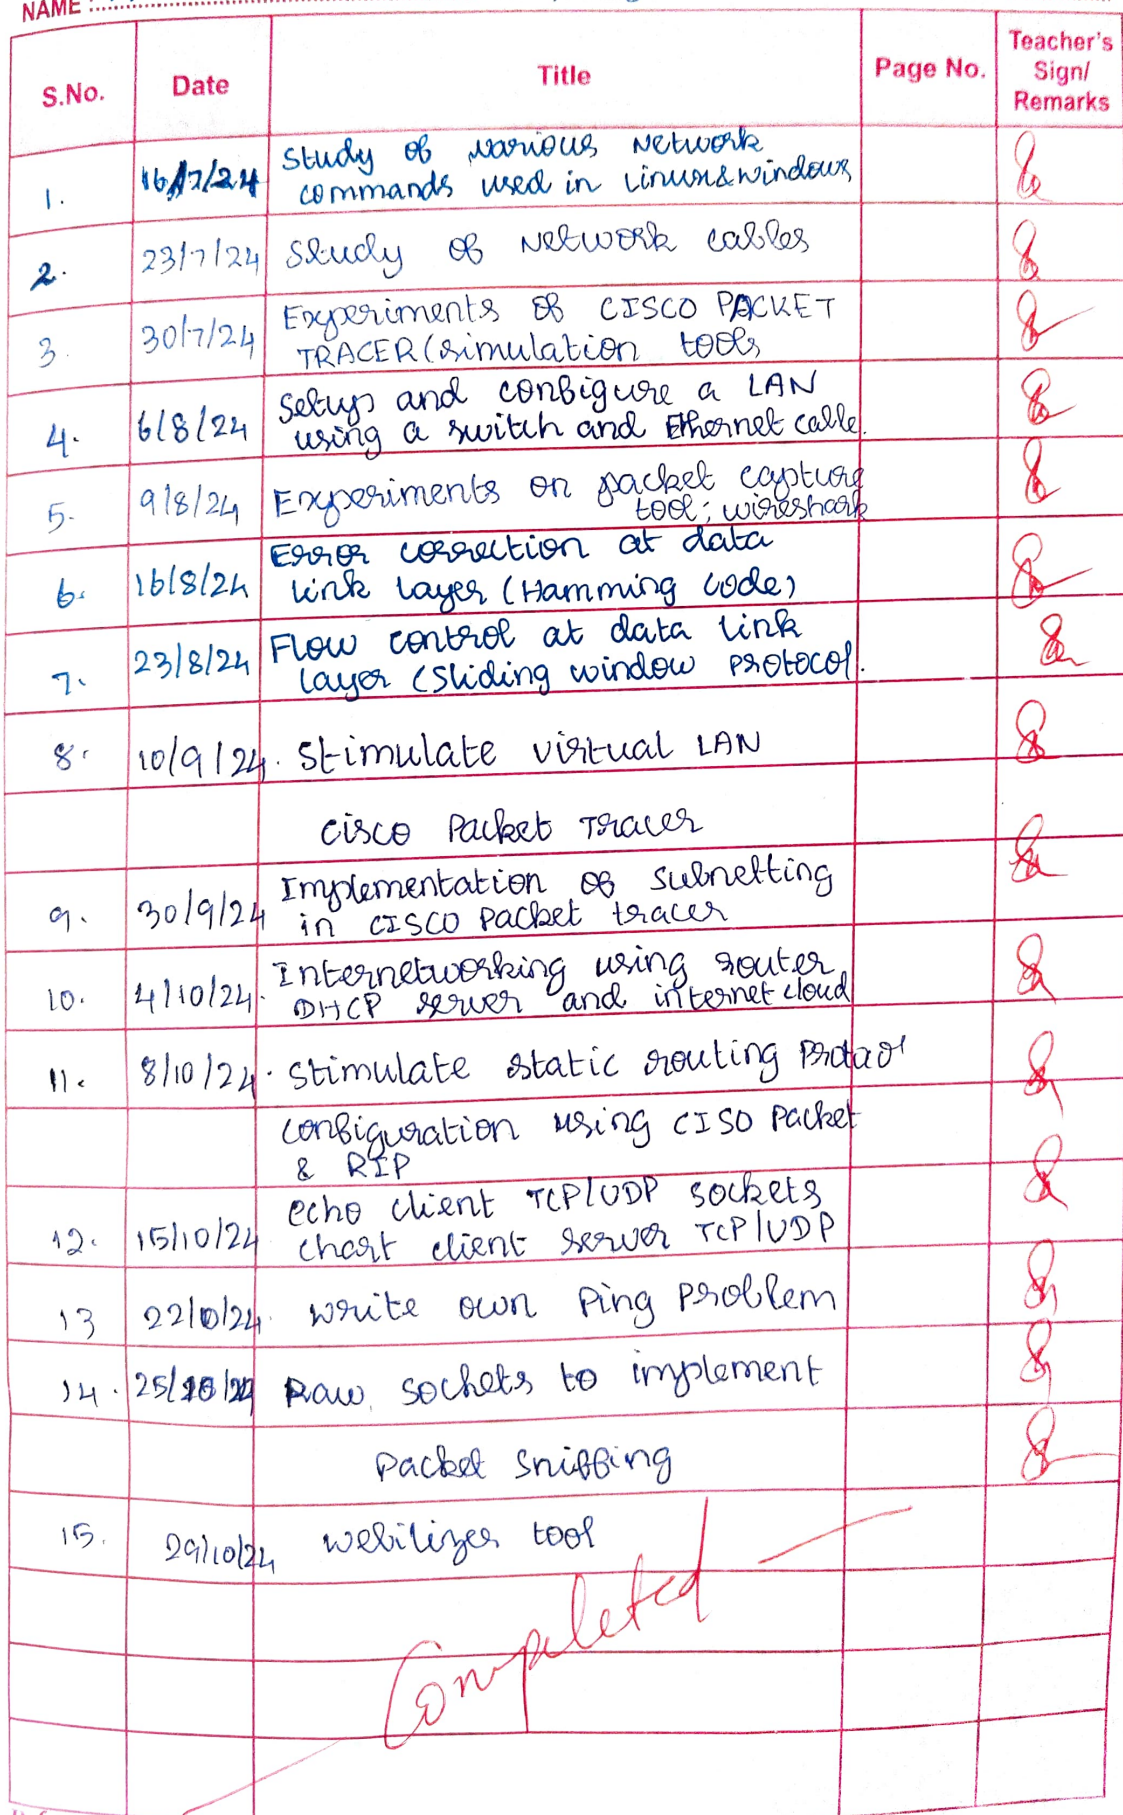 NAME
S.No. Date Title Page No. Teacher's Sign/ Remarks
1. 16/7/24 Study of various Network
commands used in Linux&windows
2. 23/7/24 Study of Network cables
3. 30/7/24 Experiments of CISCO PACKET
TRACER(simulation tools
4. 6/8/24 Setup and configure a LAN
using a switch and Ethernet cable.
5. 9/8/24 Experiments on packet capture
tool; wireshark
6. 16/8/24 Error correction at data
link layer (Hamming code)
7. 23/8/24 Flow control at data link
layer (Sliding window protocol.
8. 10/9/24. Stimulate virtual LAN
cisco Packet Tracer
9. 30/9/24 Implementation of subnetting
in CISCO Packet tracer
10. 4/10/24. Internetworking using router
DHCP server and internet cloud
11. 8/10/24. Stimulate static routing
configuration using CISO Packet
& RIP
12. 15/10/24 echo client TCP/UDP sockets
chart client server TCP/UDP
13 22/10/24. write own Ping Problem
14. 25/10/24 Raw sockets to implement
Packet Sniffing
15. 29/10/24 webilizer tool
Completed